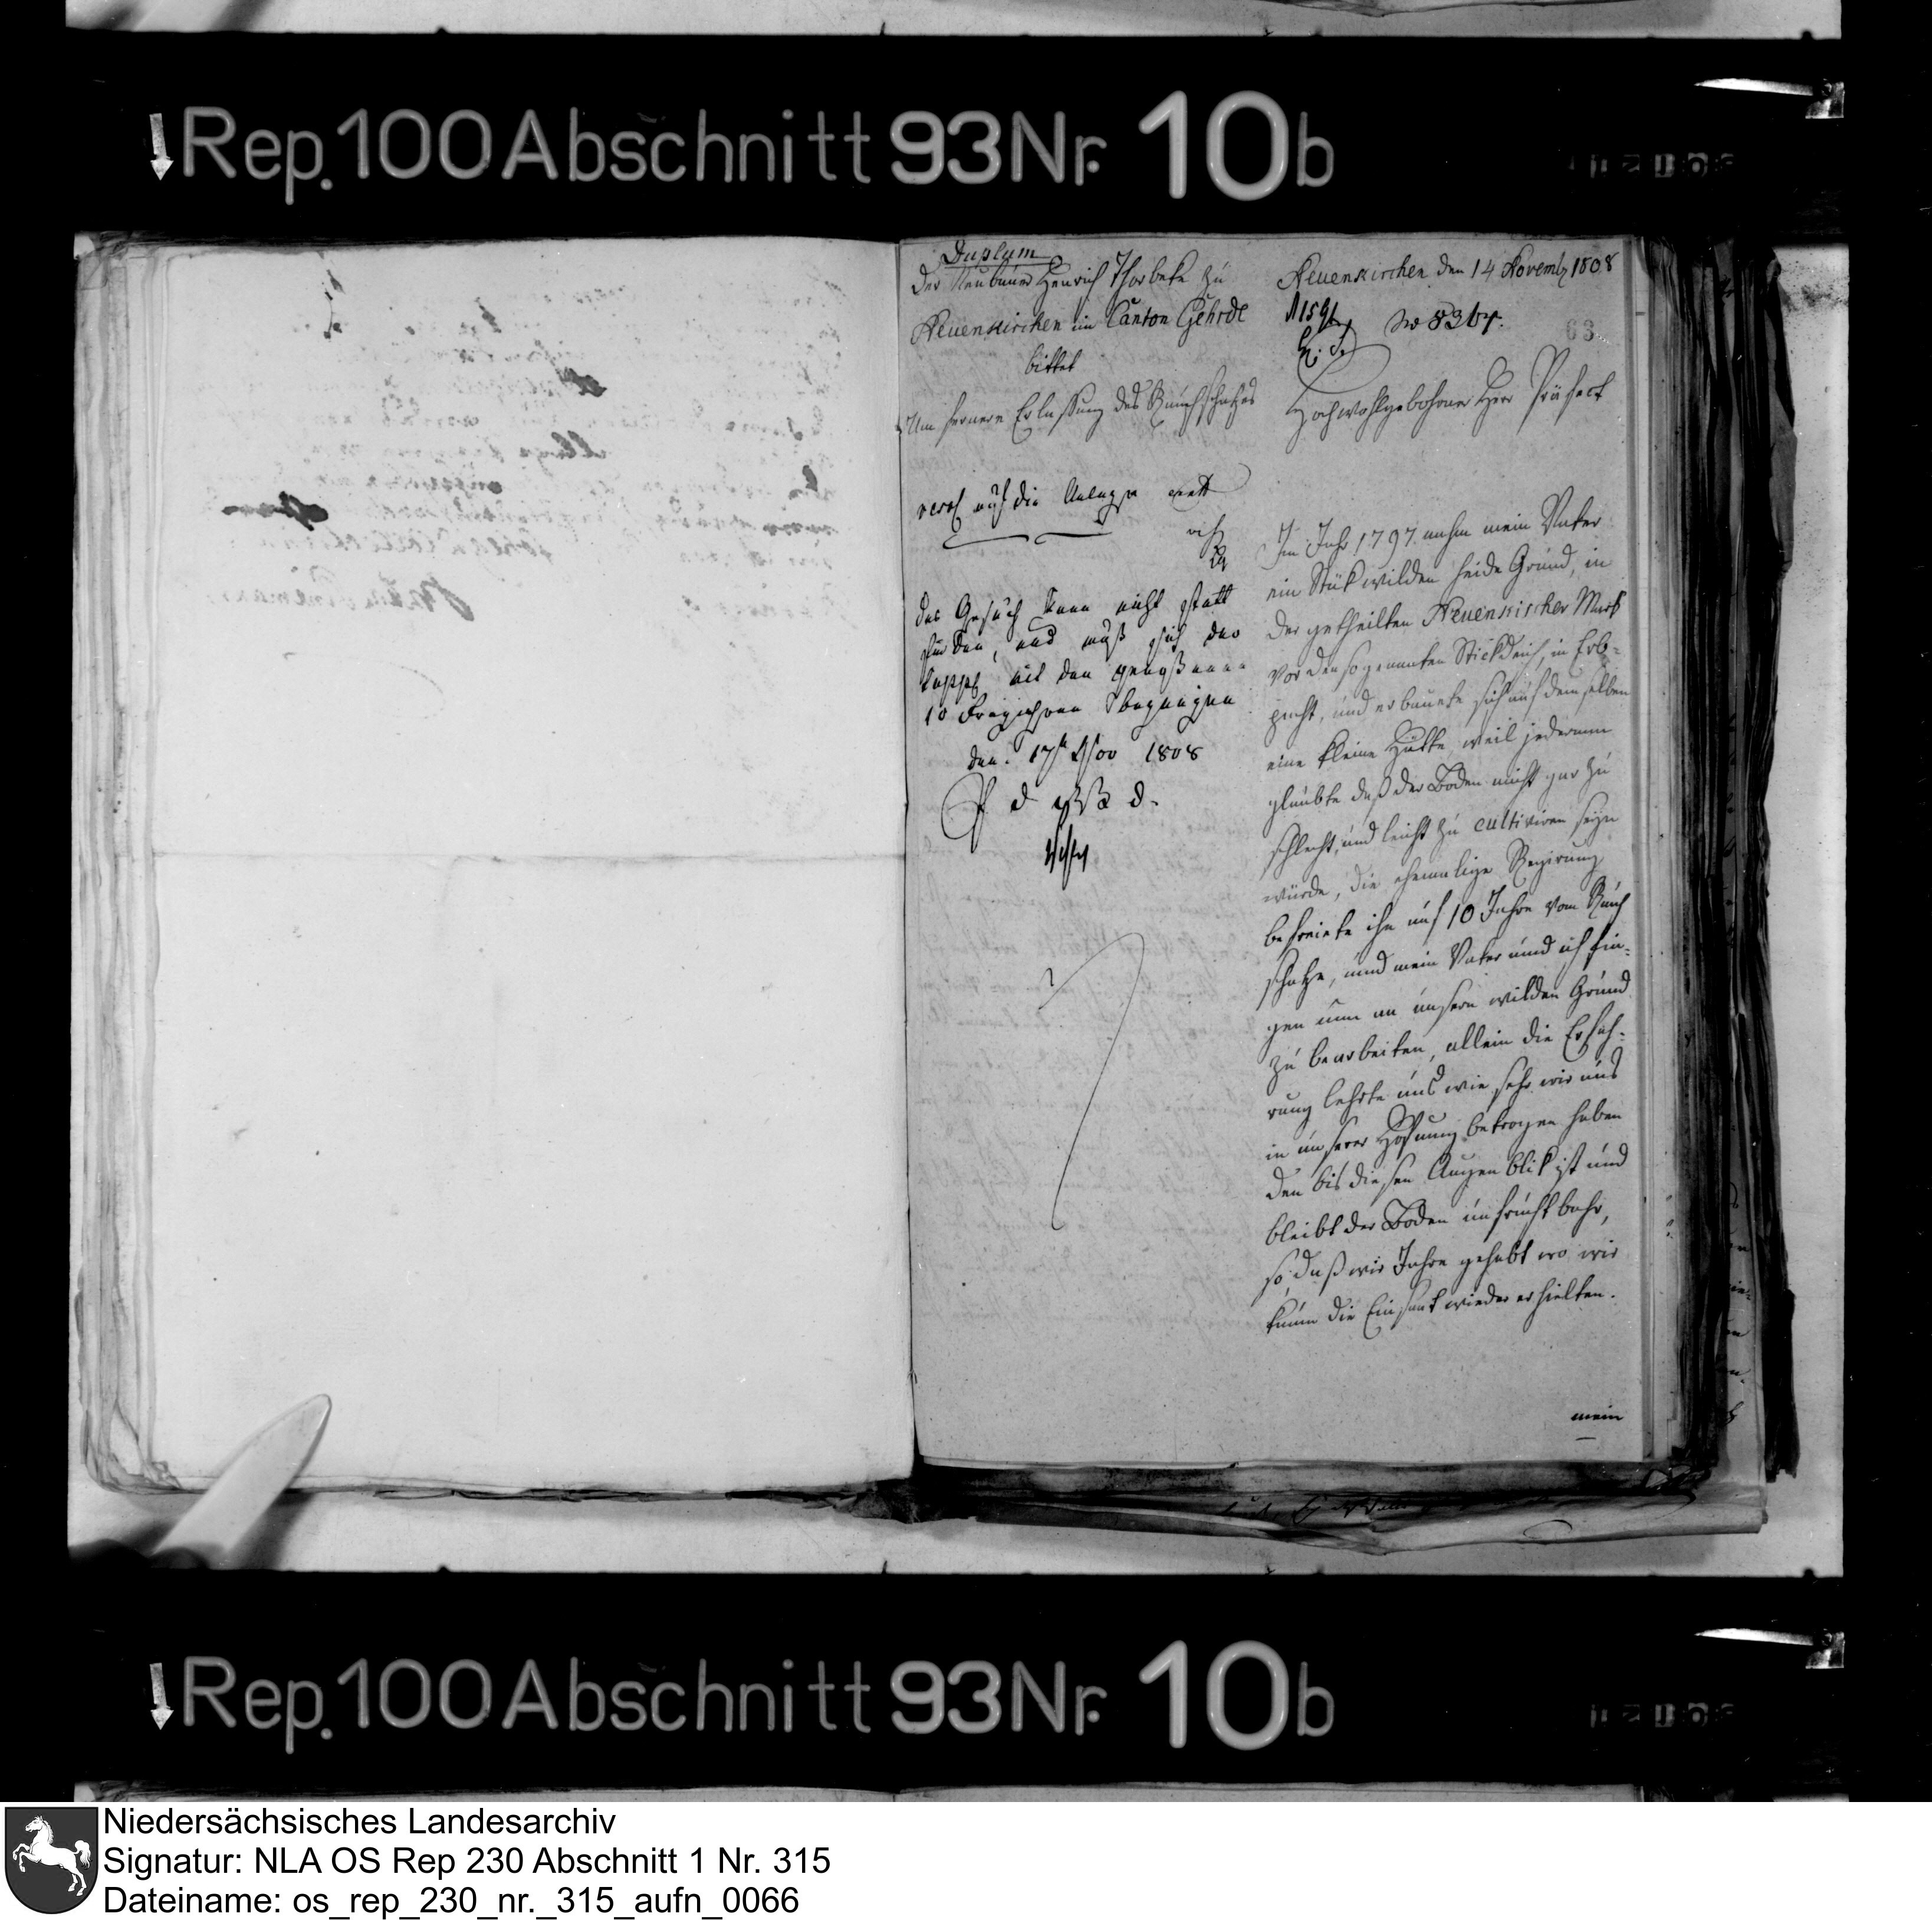 Rep. 100 Abschnitt 93 Nr. 10b
Duplum
Der Neubauer Henrich Thorbeke zu
Neuenkirchen im Canton Gehrde
bittet
um fernere Erlassung des Rauchschatzes
auf die Anlage
Das Gesuch kann nicht statt
finden, und muß sich der
mit den genoßenen
10 Freyjahren begnügen
den 17t Nov 1808
Neuenkirchen den 14 Novemb 1808
No 8364.
63
Hochwohlgebohrner Herr Präfect
Im Jahr 1797 nahm mein Vater
ein Stük wilden heide Grund, in
der getheilten Neuenkircher Mark
vor den sogenanten Stickdeich, in Erb-
pacht, und erbauete sich auf demselben
eine kleine Hütte, weil jederman
glaubte daß der Boden nicht gar zu
schlecht, und leicht zu cultiviren seyn
würde, die ehemalige Regierung
befreiete ihn auf 10 Jahre vom Rauch
schatze, und mein Vater und ich fin-
gen nun an unsern wilden Grund
zu bearbeiten, allein die Erfah-
rung lehrte uns wie sehr wir uns
in unserer Hofnung betrogen haben
den bis diesen Augenblik ist und
bleibt der Boden unfruchtbahr,
so daß wir Jahre gehabt wo wir
kaum die Einsaat wieder erhielten.
mein
Rep. 100 Abschnitt 93 Nr. 10b
Niedersächsisches Landesarchiv
Signatur: NLA OS Rep 230 Abschnitt 1 Nr. 315
Dateiname: os_rep_230_nr._315_aufn_0066